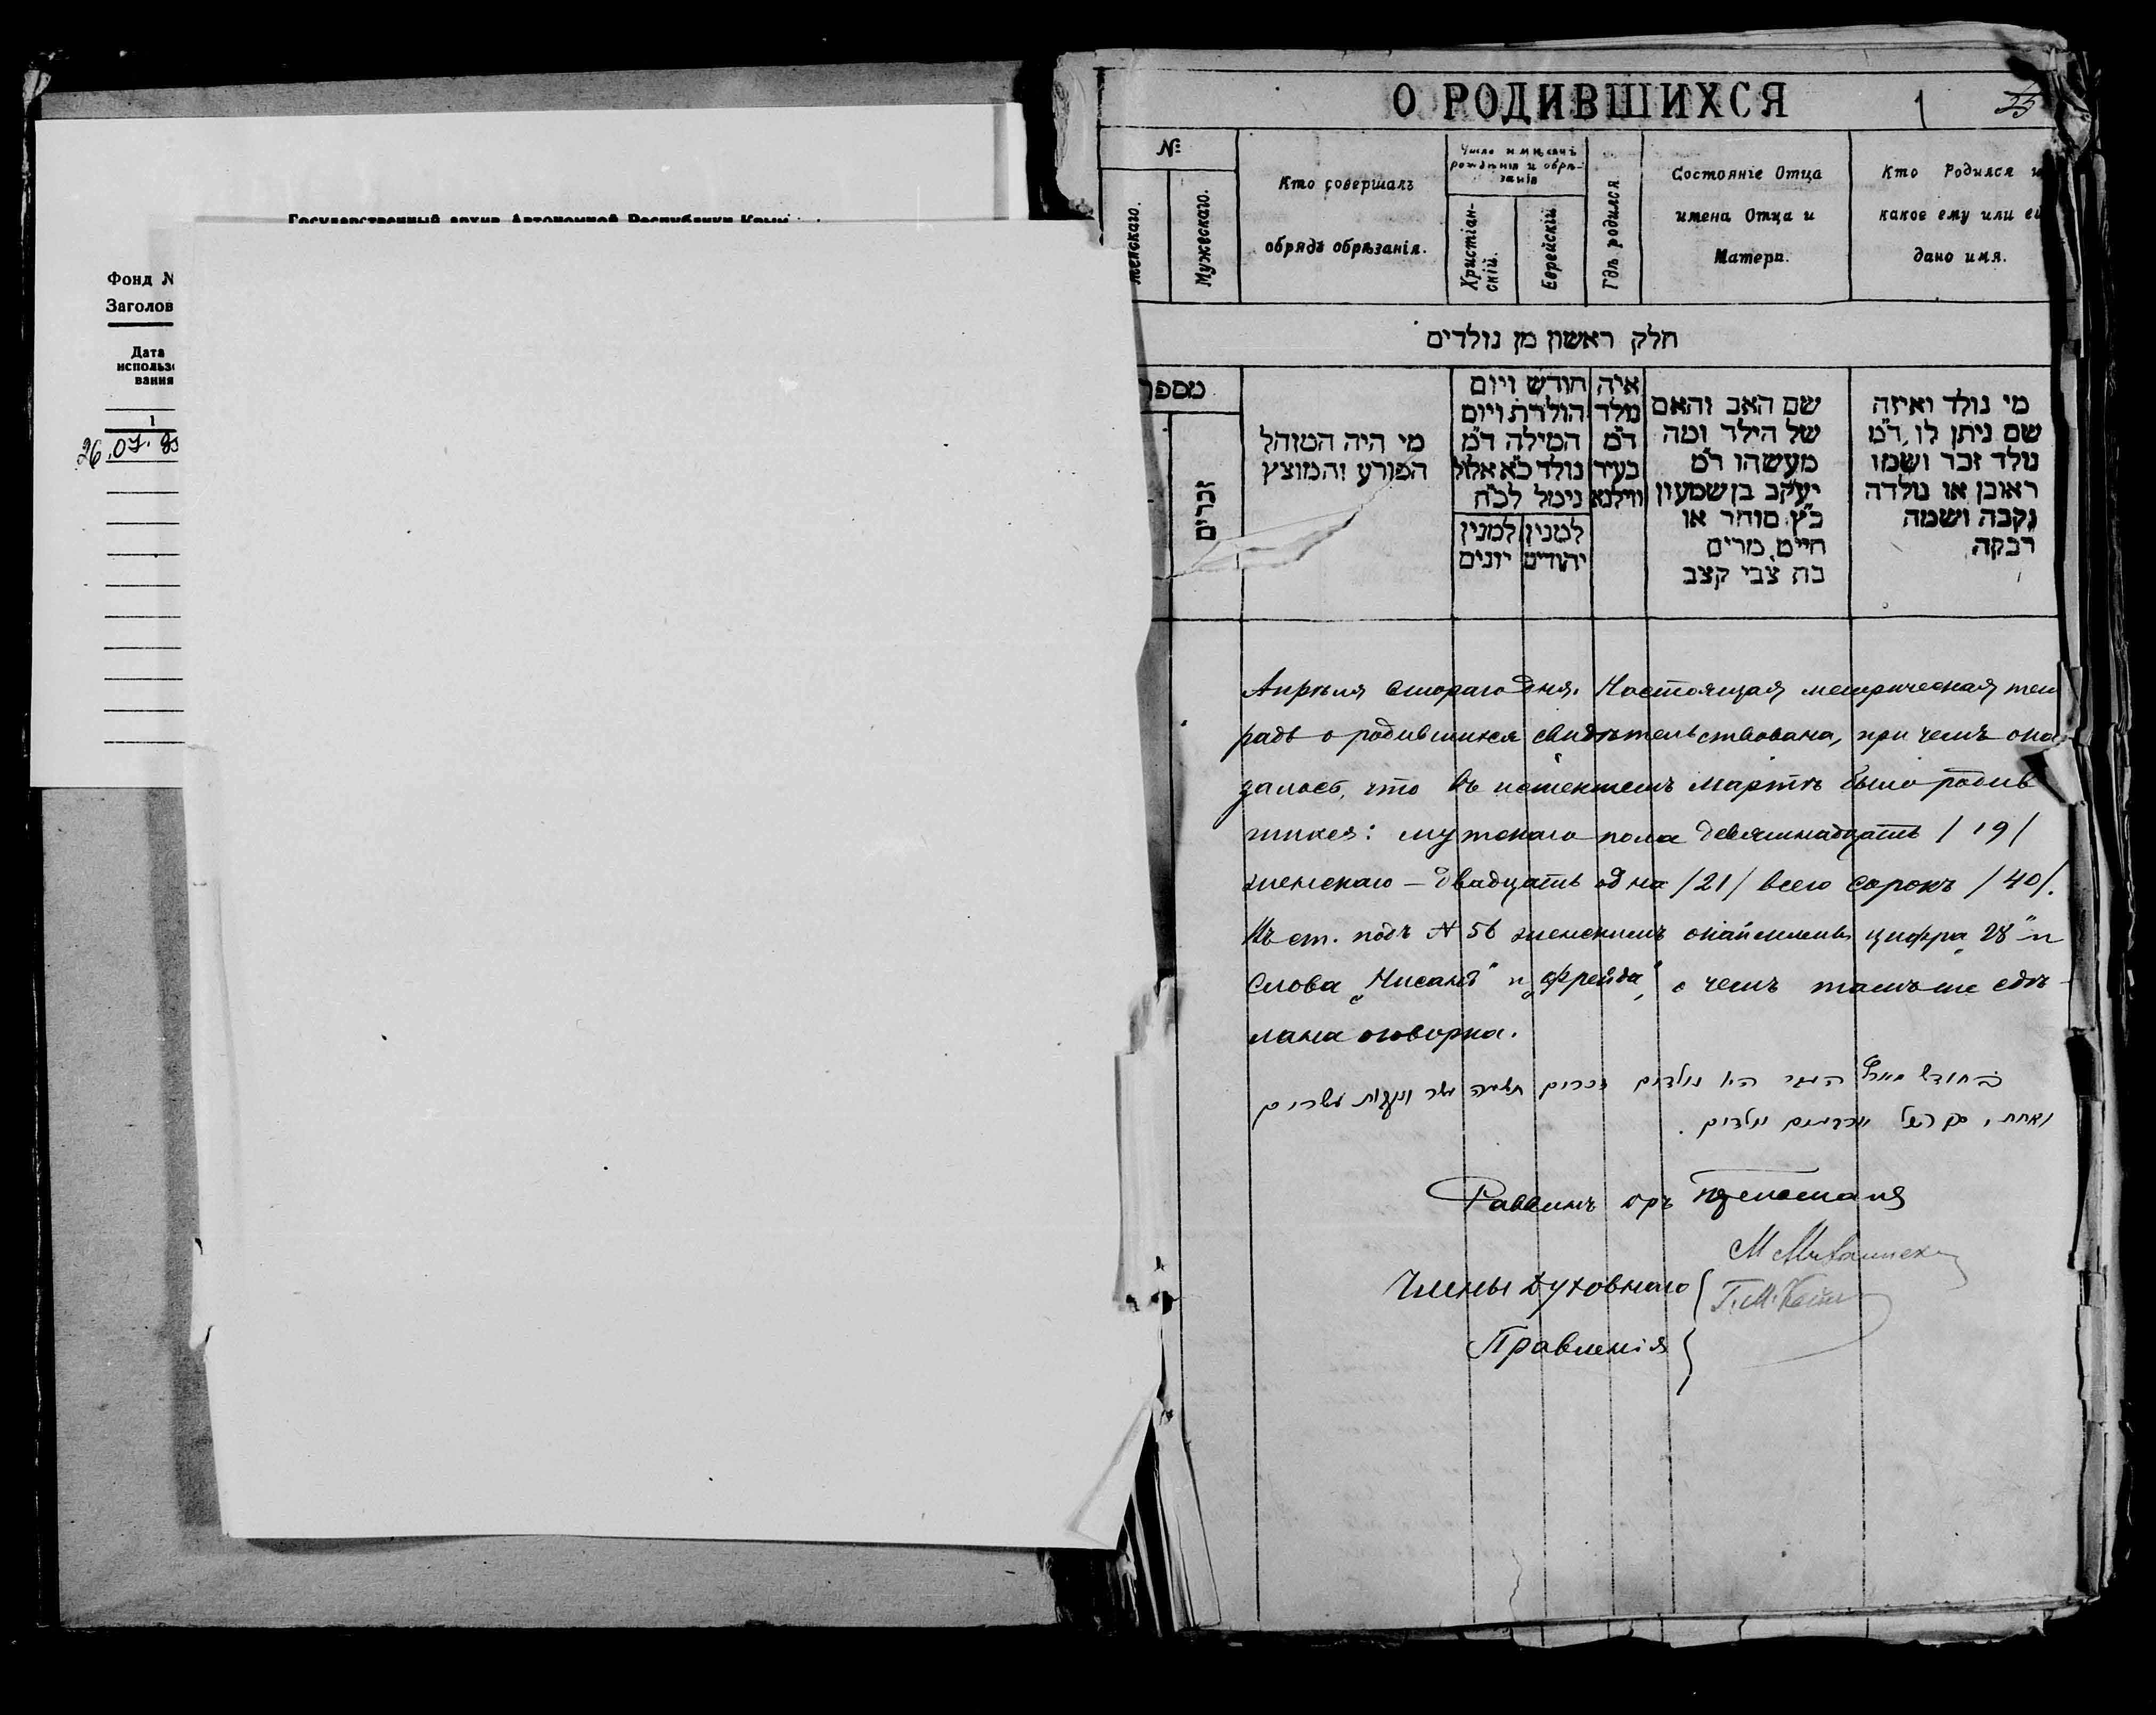 Фонд N
Заголов
Дата
использо
вания
1
26.07.
О РОДИВШИХСЯ
1
№
Мужескаго.
Кто совершалъ
обрядъ обрѣзанія.
Число и мѣсяцъ
рожденія и обрѣ-
занія
Христіан-
скій.
Еврейскій
Гдѣ родился
Состояніе Отца
имена Отца и
Матери.
Кто Родился и
какое ему или ей
дано имя.
חלק ראשון מן נולדים
מספר
זכרים
מי היה המוהל
הפורע והמוצץ
חודש ויום
הולדת ויום
המילה ד״מ
נולד כ״א אלול
נימל לכ״ח
למנין
יהודים
למנין
יונים
איה
נולד
ד״מ
בעיר
ווילנא
שם האב והאם
של הילד ומה
מעשהו ד״מ
יעקב בן שמעון
כ״ץ סוחר או
חייט, מרים
בת צבי קצב
מי נולד ואיזה
שם ניתן לו, ד״מ
נולד זכר ושמו
ראובן או נולדה
נקבה ושמה
רבקה
Апрѣля второго дня. Настоящая метрическая тет
радь о родившихся свидѣтельствована, при чемъ ока
залось, что въ истекшемъ Мартѣ было родив
шихся: мужскаго пола девятнадцать /19/
женскаго – двадцать одна /21/ всего сорокъ /40/.
Въ ст. подъ N 56 женскимъ цифра „28" и
слова „Нисанъ" и „Фрейда", о чемъ тамъ же сдѣ-
лана оговорка.
נולדים זכרים תשעה עשר ונקבות עשרים
ואחת, סך הכל ארבעים ילדים.
Раввинъ
Члены Духовнаго
Правленія